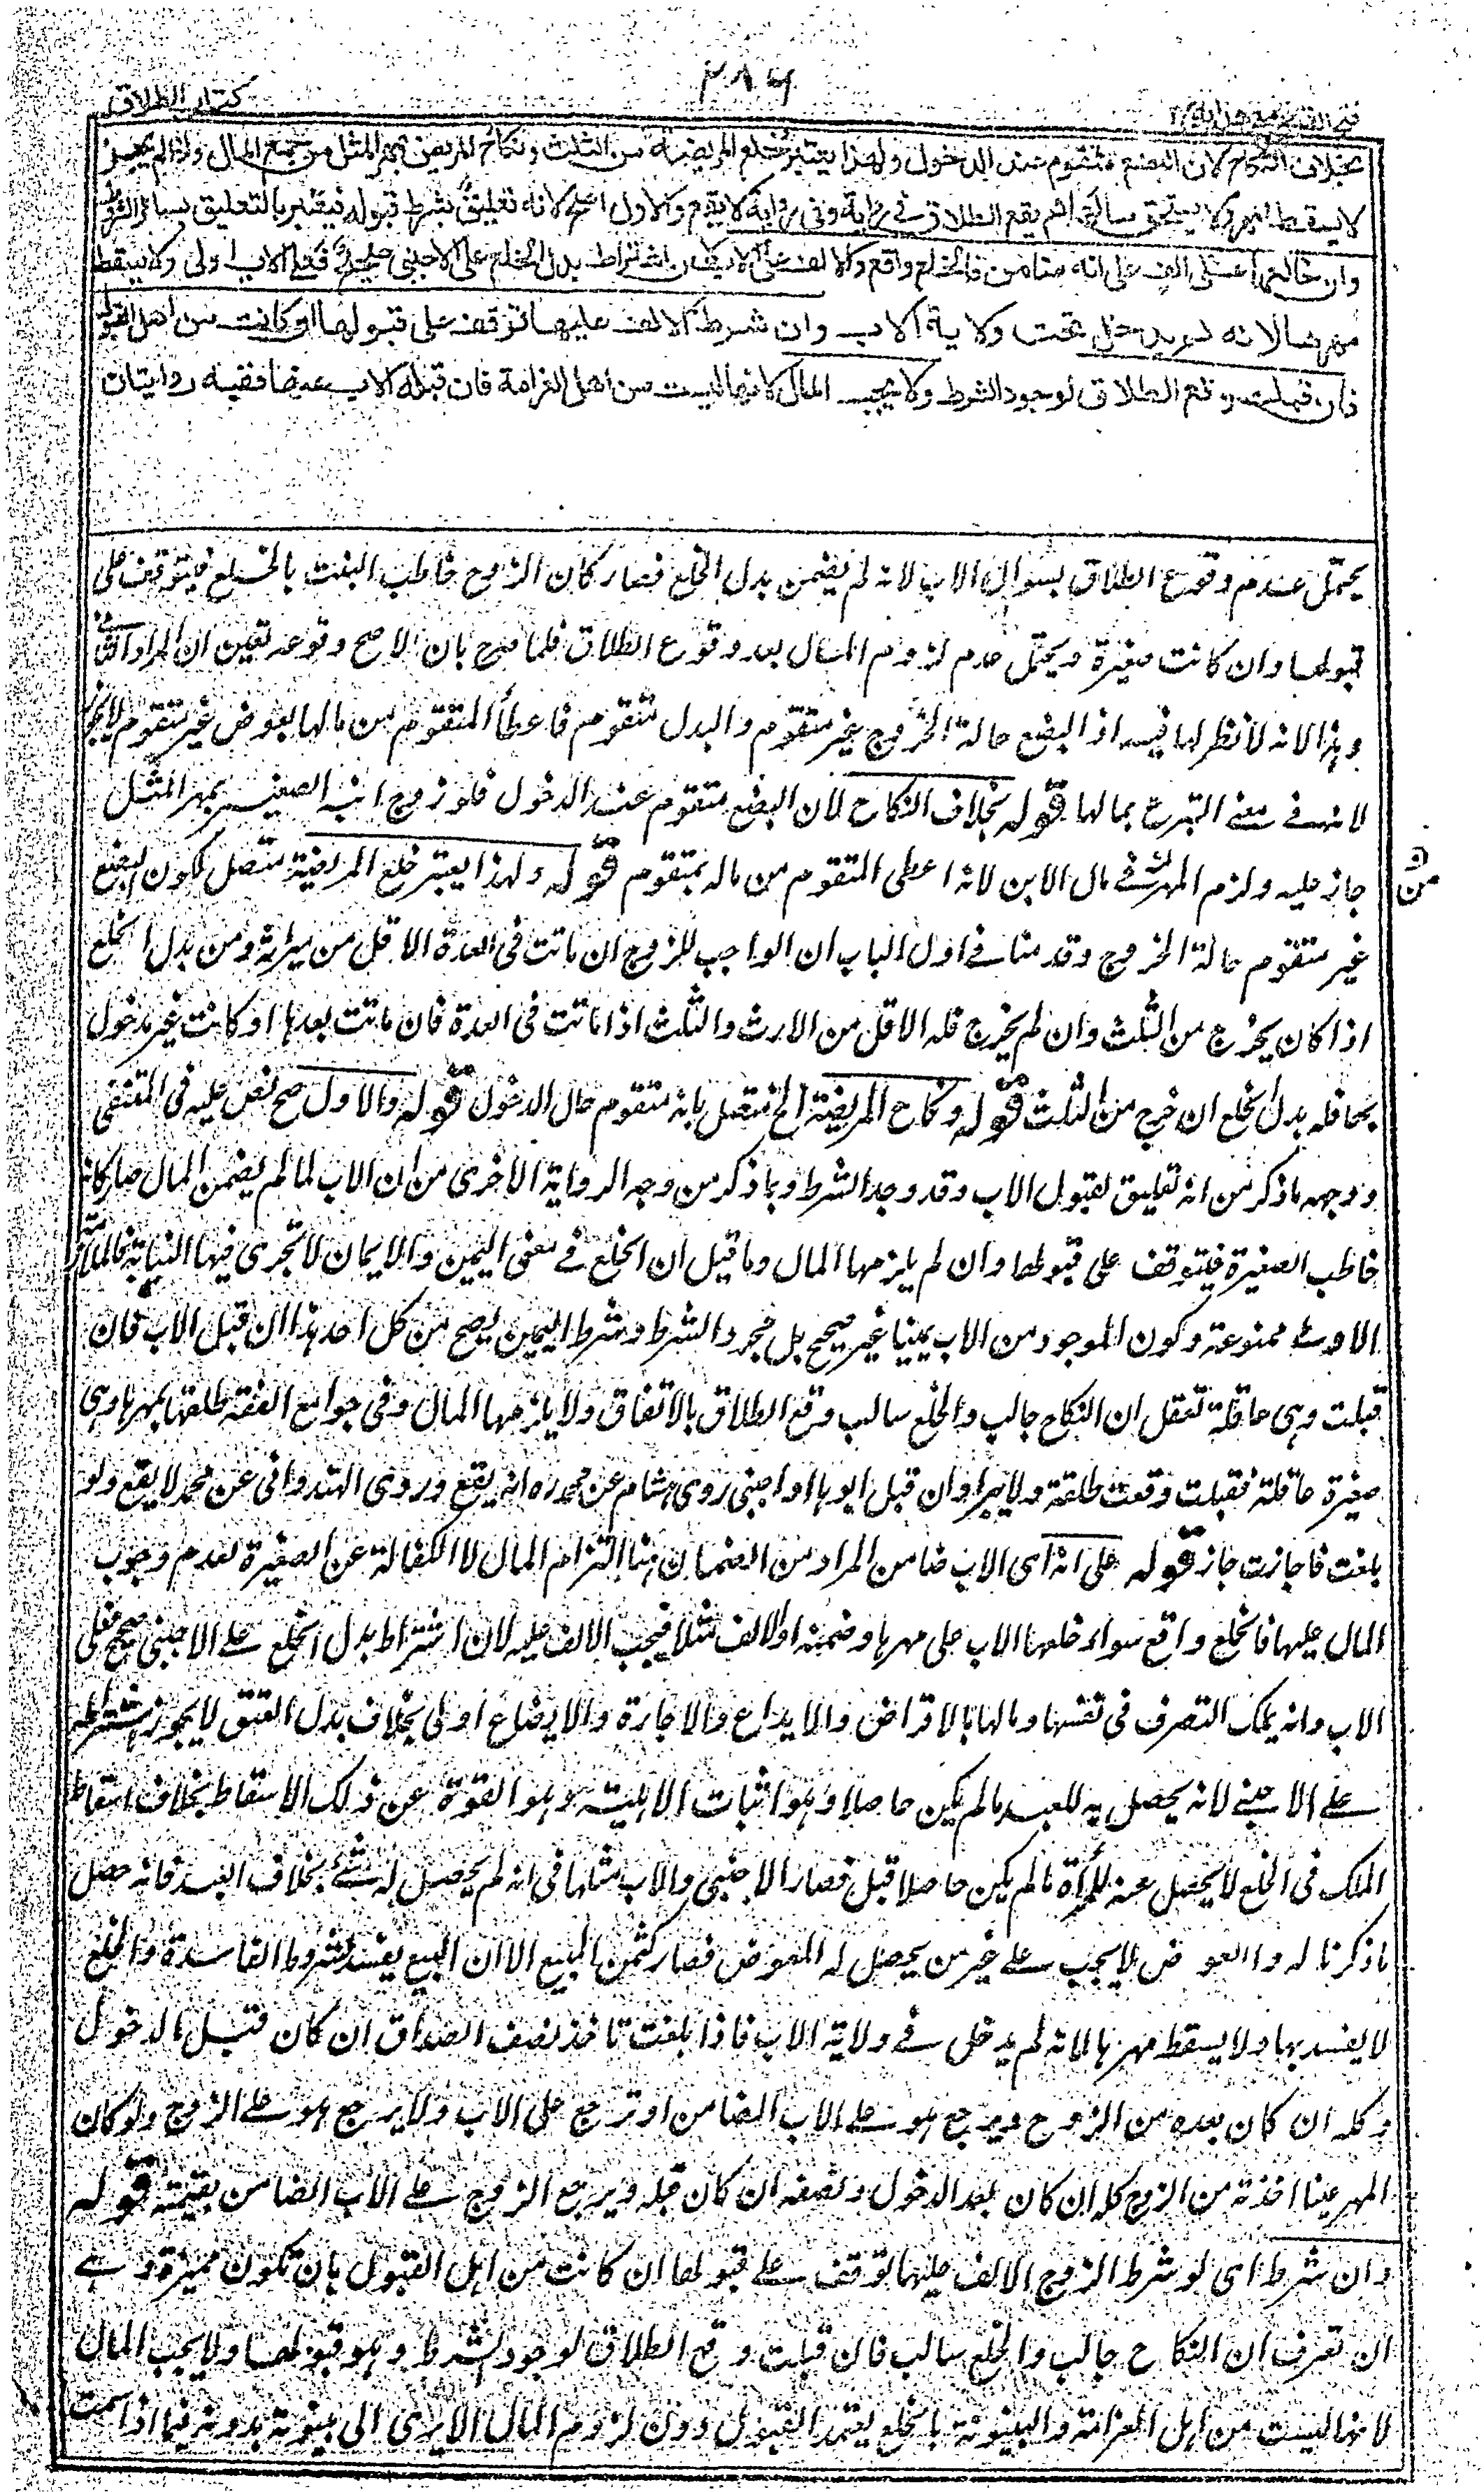 ٢٨٦
كتاب الطلاق
فتح القدير مع هداية ج٢
بخلاف النكاح لان البضع متقوم عند الدخول ولهذا يعتبر خلع المريضة من الثلث ونكاح المريض بمهر المثل من جميع المال واذا لم يجز
لا يسقط المهر ولا يستحق مالها ثم يقع الطلاق في رواية وفي رواية لا يقع والاول اصح لانه تعليق بشرط قبوله فيعتبر بالتعليق بسائر الشروط
وان خالعها على الف على انه ضامن فالخلع واقع والالف على الاب لان اشتراط بدل الخلع على الاجنبي صحيح فعلى الاب اولى ولا يسقط
مهرها لانه لم يدخل تحت ولاية الاب وان شرط الالف عليها توقف على قبولها ان كانت من اهل القبول
فان قبلت وقع الطلاق لوجود الشرط ولا يجب المال لانها ليست من اهل الغرامة فان قبله الاب عنها ففيه روايتان
يحتمل عدم وقوع الطلاق بسوال الاب لانه لم يضمن بدل الخلع فصار كان الزوج خاطب البنت بالخلع فيتوقف على
قبولها وان كانت صغيرة ويحتمل عدم لزوم المال بعد وقوع الطلاق فلما صرح بان الاصح وقوعه تعين ان المراد الثاني
وهذا لانه لا نظر لها فيه اذ البضع حالة الخروج غير متقوم والبدل متقوم فاعطأ المتقوم من مالها بعوض غير متقوم لا يجوز
لانه في معنى التبرع بمالها قوله بخلاف النكاح لان البضع متقوم عند الدخول فلو زوج ابنه الصغير بمهر المثل
جاز عليه ولزم المهر في مال الابن لانه اعطى المتقوم من ماله بمتقوم قوله ولهذا يعتبر خلع المريضة متصل بكون البضع
غير متقوم حالة الخروج وقدمنا في اول الباب ان الواجب للزوج ان ماتت في العدة الاقل من ميراثه ومن بدل الخلع
اذا كان يخرج من الثلث وان لم يخرج فله الاقل من الارث والثلث اذا ماتت في العدة فان ماتت بعدها او كانت غير مدخول
بها فله بدل الخلع ان خرج من الثلث قوله ونكاح المريضة الخ متصل بانه متقوم حال الدخول قوله والاول صح نص عليه في المنتقى
ووجهه ما ذكر من انه تعليق لقبول الاب وقد وجد الشرط وما ذكر من وجه الرواية الاخرى من ان الاب لما لم يضمن المال صار كانه
خاطب الصغيرة فيتوقف على قبولها وان لم يلزمها المال وما قيل ان الخلع في معنى اليمين والايمان لا تجرى فيها النيابة فالملازمة
الاولى ممنوعة وكون الموجود من الاب يمينا غير صحيح بل مجرد الشرط وشرط اليمين يصح من كل احد هذا ان قبل الاب فان
قبلت وهى عاقلة تعقل ان النكاح جالب والخلع سالب وقع الطلاق بالاتفاق ولا يلزمها المال وفى جوامع الفقه طلقها بمهرها وهى
صغيرة عاقلة فقبلت وقعت طلقة ولا يبرا وان قبل ابوها او اجنبى روى هشام عن محمد ره انه يقع وروى الهندوانى عن محمد لا يقع ولو
بلغت فاجازت جاز قوله على انه اى الاب ضامن المراد من الضمان هنا التزام المال لا الكفالة عن الصغيرة لعدم وجوب
المال عليها فالخلع واقع سواء خلعها الاب على مهرها وضمنه او الالف مثلا فيجب الالف عليه لان اشتراط بدل الخلع على الاجنبى صحيح فعلى
الاب وانه يملك التصرف فى نفسها ومالها بالاقراض والايداع والاجارة والابضاع اولى بخلاف بدل العتق لا يجوز اشتراطه
على الاجنبي لانه يحصل به للعبد ما لم يكن حاصلا وهو اثبات الاهلية وهو القوة عن ذلك الاسقاط بخلاف اسقاط
الملك فى الخلع لا يحصل عنه للمرأة ما لم يكن حاصلا قبل فصار الاجنبى والاب مثلها فى انه لم يحصل له شئ بخلاف العبد فانه حصل
ما ذكرنا له والعوض لا يجب على غير من يحصل له المعوض فصار كثمن المبيع الا ان البيع يفسد بالشروط الفاسدة والخلع
لا يفسد بها ولا يسقط مهرها لانه لم يدخل في ولاية الاب فاذا بلغت تاخذ نصف الصداق ان كان قبل الدخول
وكله ان كان بعده من الزوج ويرجع هو على الاب الضامن او ترجع على الاب ولا يرجع هو على الزوج ولو كان
المهر عينا اخذته من الزوج كله ان كان بعد الدخول ونصفه ان كان قبله ويرجع الزوج على الاب الضامن بقيمته قوله
وان شرط اى لو شرط الزوج الالف عليها توقف على قبولها ان كانت من اهل القبول بان تكون مميزة وهي
ان تعرف ان النكاح جالب والخلع سالب فان قبلت وقع الطلاق لوجود الشرط وهو قبولها ولا يجب المال
لانها ليست من اهل الغرامة والبينونة بالخلع يعتمد القبول دون لزوم المال الا يرى الى بينونة بدونه فيما اذا سمت